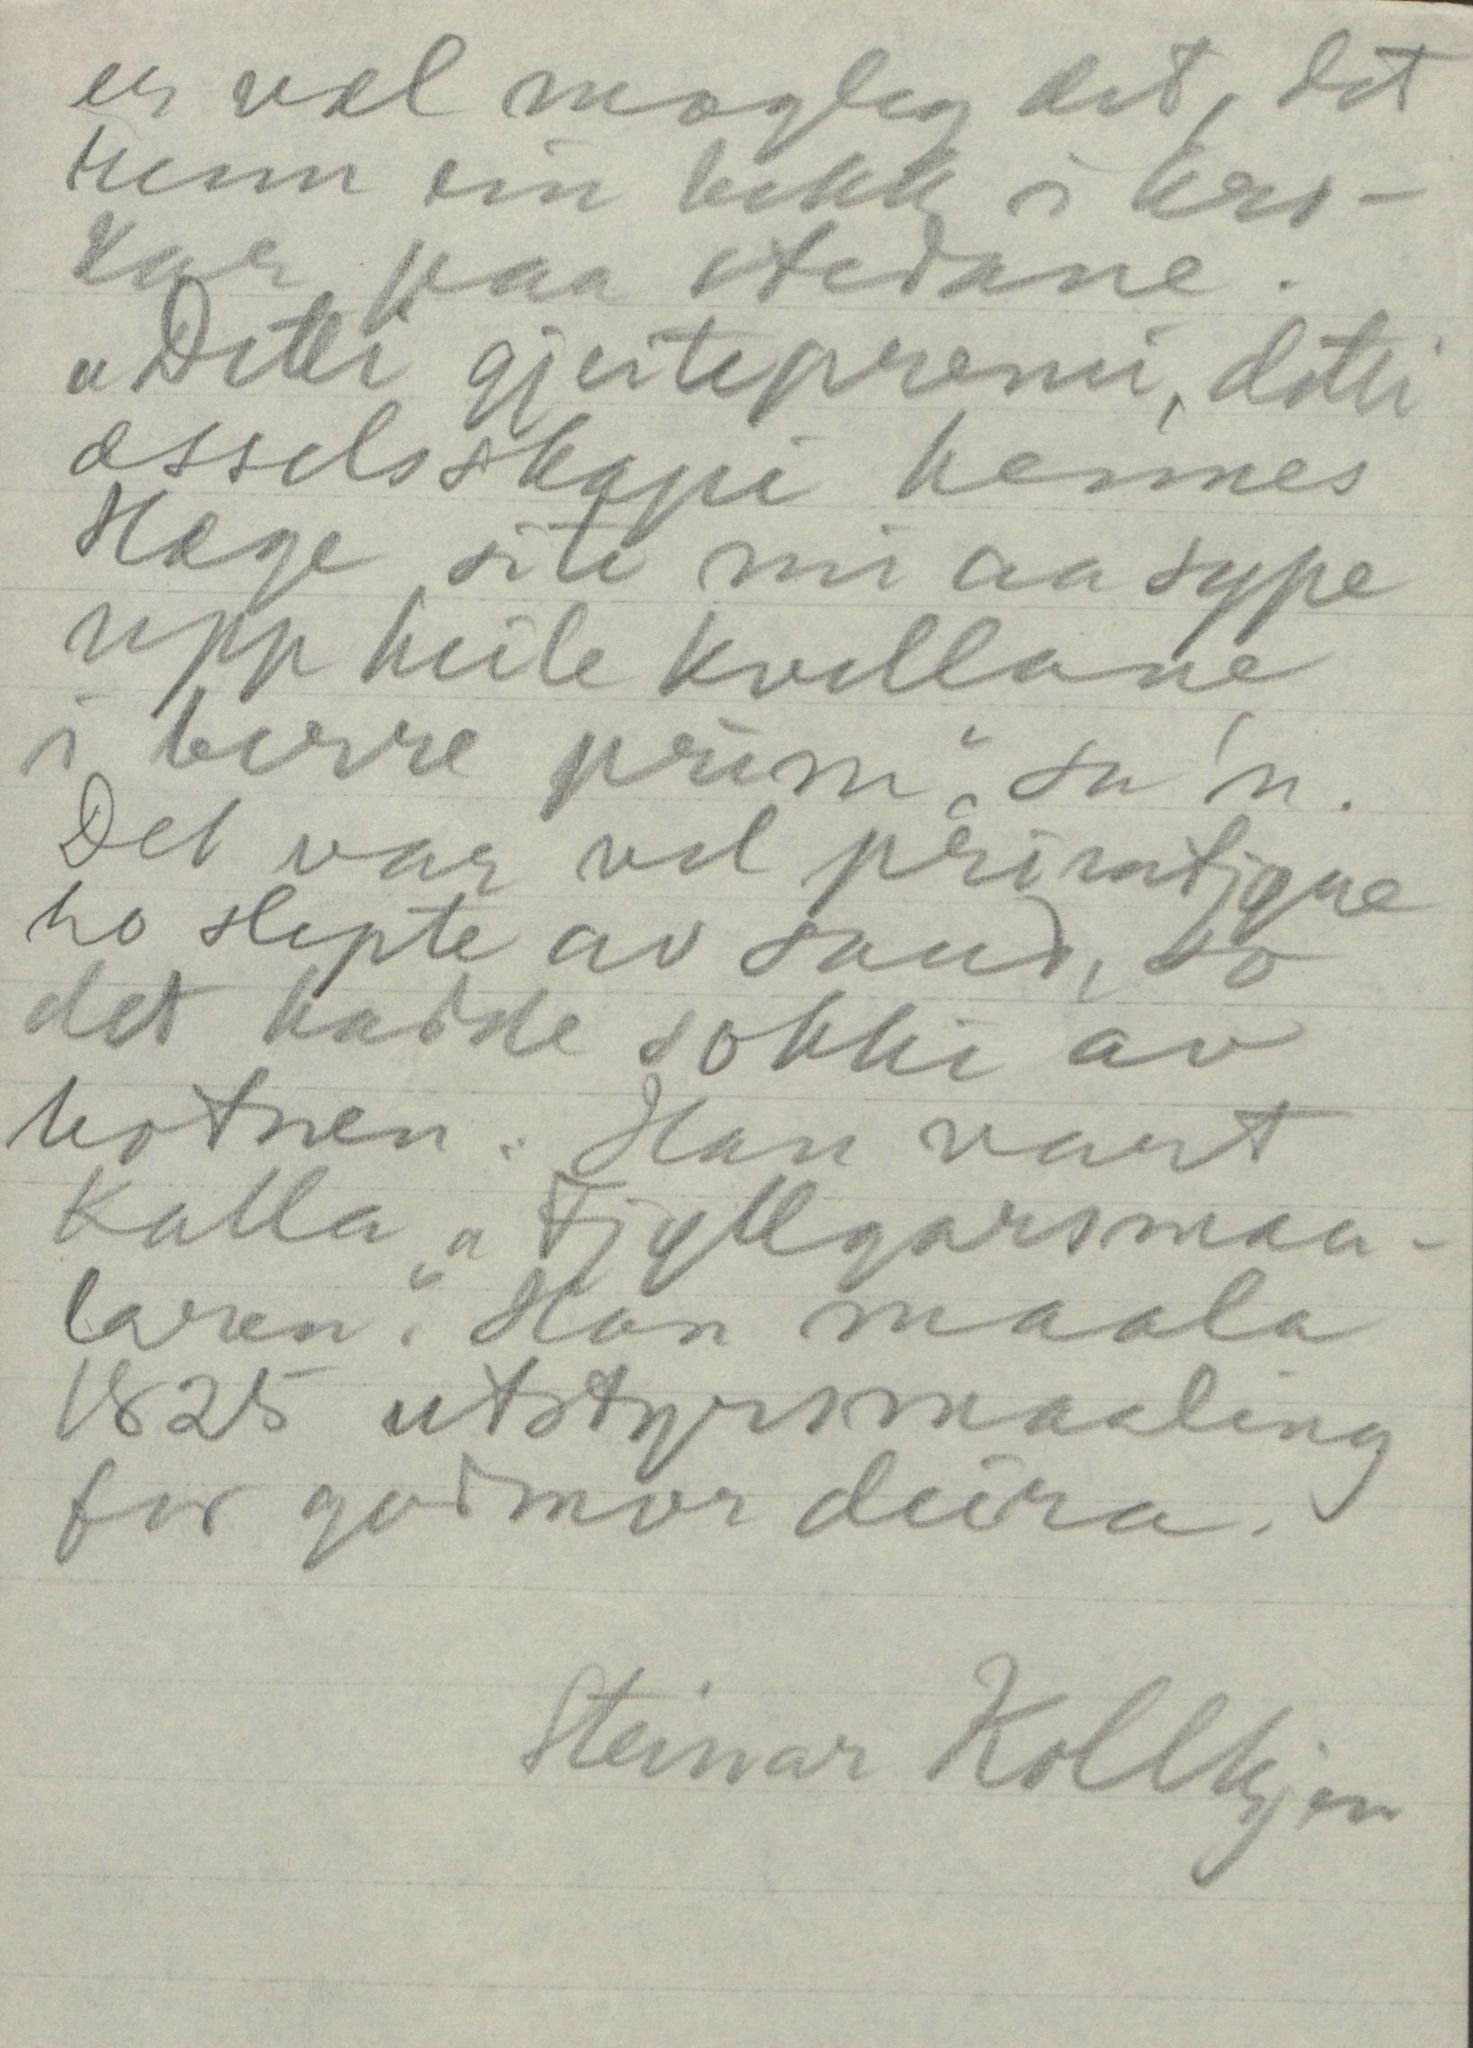 er vel mogleg det, det
renn ein bekk i kro-
kar paa stedane.
„Detti gjeiteprimi, detti
esselsskapi hennes
Hæge, sit mi aa sype
upp heile kvellane,
i berre prim“, sa 'n.
Det var vel
ho slepte av saud, so
det hadde sokki av
botnen. Han vart
kalla „Fjyllgarsmaa-
laren“. Han maala
1825 utstyrsmaaling
for godmor deira.
Steinar Kollkjen